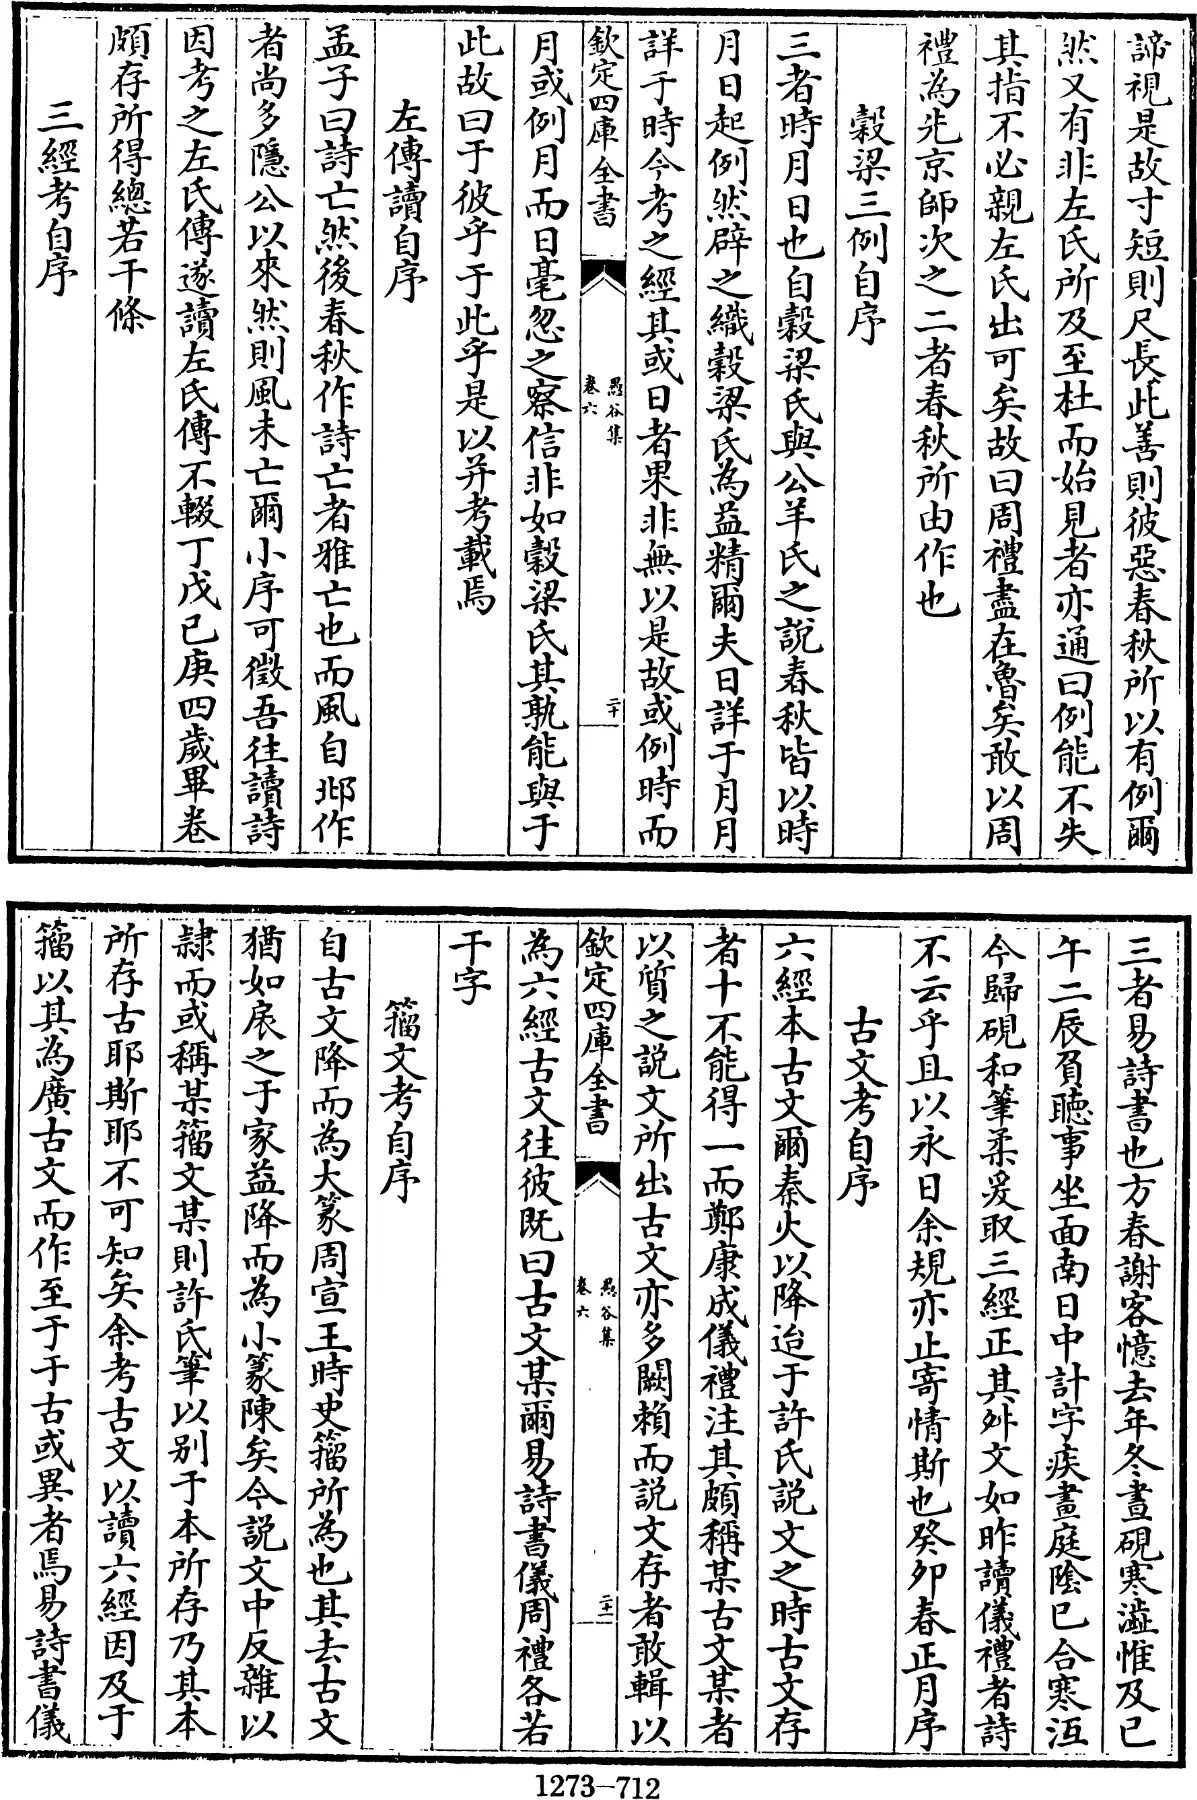 諦視是故寸短則尺長此善則彼惡春秋所以有例爾
然又有非左氏所及至杜而始見者亦通曰例能不失
其指不必親左氏出可矣故曰周禮盡在魯矣敢以周
禮為先京師次之二者春秋所由作也
穀梁三例自序
三者時月日也自穀梁氏與公羊氏之說春秋皆以時
月日起例然辟之織穀梁氏為益精爾夫日詳于月月
詳于時今考之經其或日者果非無以是故或例時而
欽定四庫全書
愚谷集
卷六
二十
月或例月而日毫忽之察信非如穀梁氏其孰能與于
此故曰于彼乎于此乎是以并考載焉
左傳讀自序
孟子曰詩亡然後春秋作詩亡者雅亡也而風自邶作
者尚多隱公以來然則風未亡爾小序可徵吾往讀詩
因考之左氏傳遂讀左氏傳不輟丁戊已庚四歲畢卷
頗存所得總若干條
三經考自序
三者易詩書也方春謝客憶去年冬晝硯寒澁惟及已
午二辰負聽事坐面南日中計字疾晝庭陰已合寒沍
今歸硯和筆柔爰取三經正其舛文如昨讀儀禮者詩
不云乎且以永日余規亦止寄情斯也癸卯春正月序
古文考自序
六經本古文爾秦火以降迨于許氏說文之時古文存
者十不能得一而鄭康成儀禮注其頗稱某古文某者
以質之說文所出古文亦多闕賴而說文存者敢輯以
欽定四庫全書
愚谷集
卷六
二十一
為六經古文往彼既曰古文某爾易詩書儀周禮各若
干字
籀文考自序
自古文降而為大篆周宣王時史籀所為也其去古文
猶如扆之于家益降而為小篆陳矣今說文中反雜以
隷而或稱某籀文某則許氏筆以别于本所存乃其本
所存古耶斯耶不可知矣余考古文以讀六經因及于
籀以其為廣古文而作至于于古或異者焉易詩書儀
1273-712